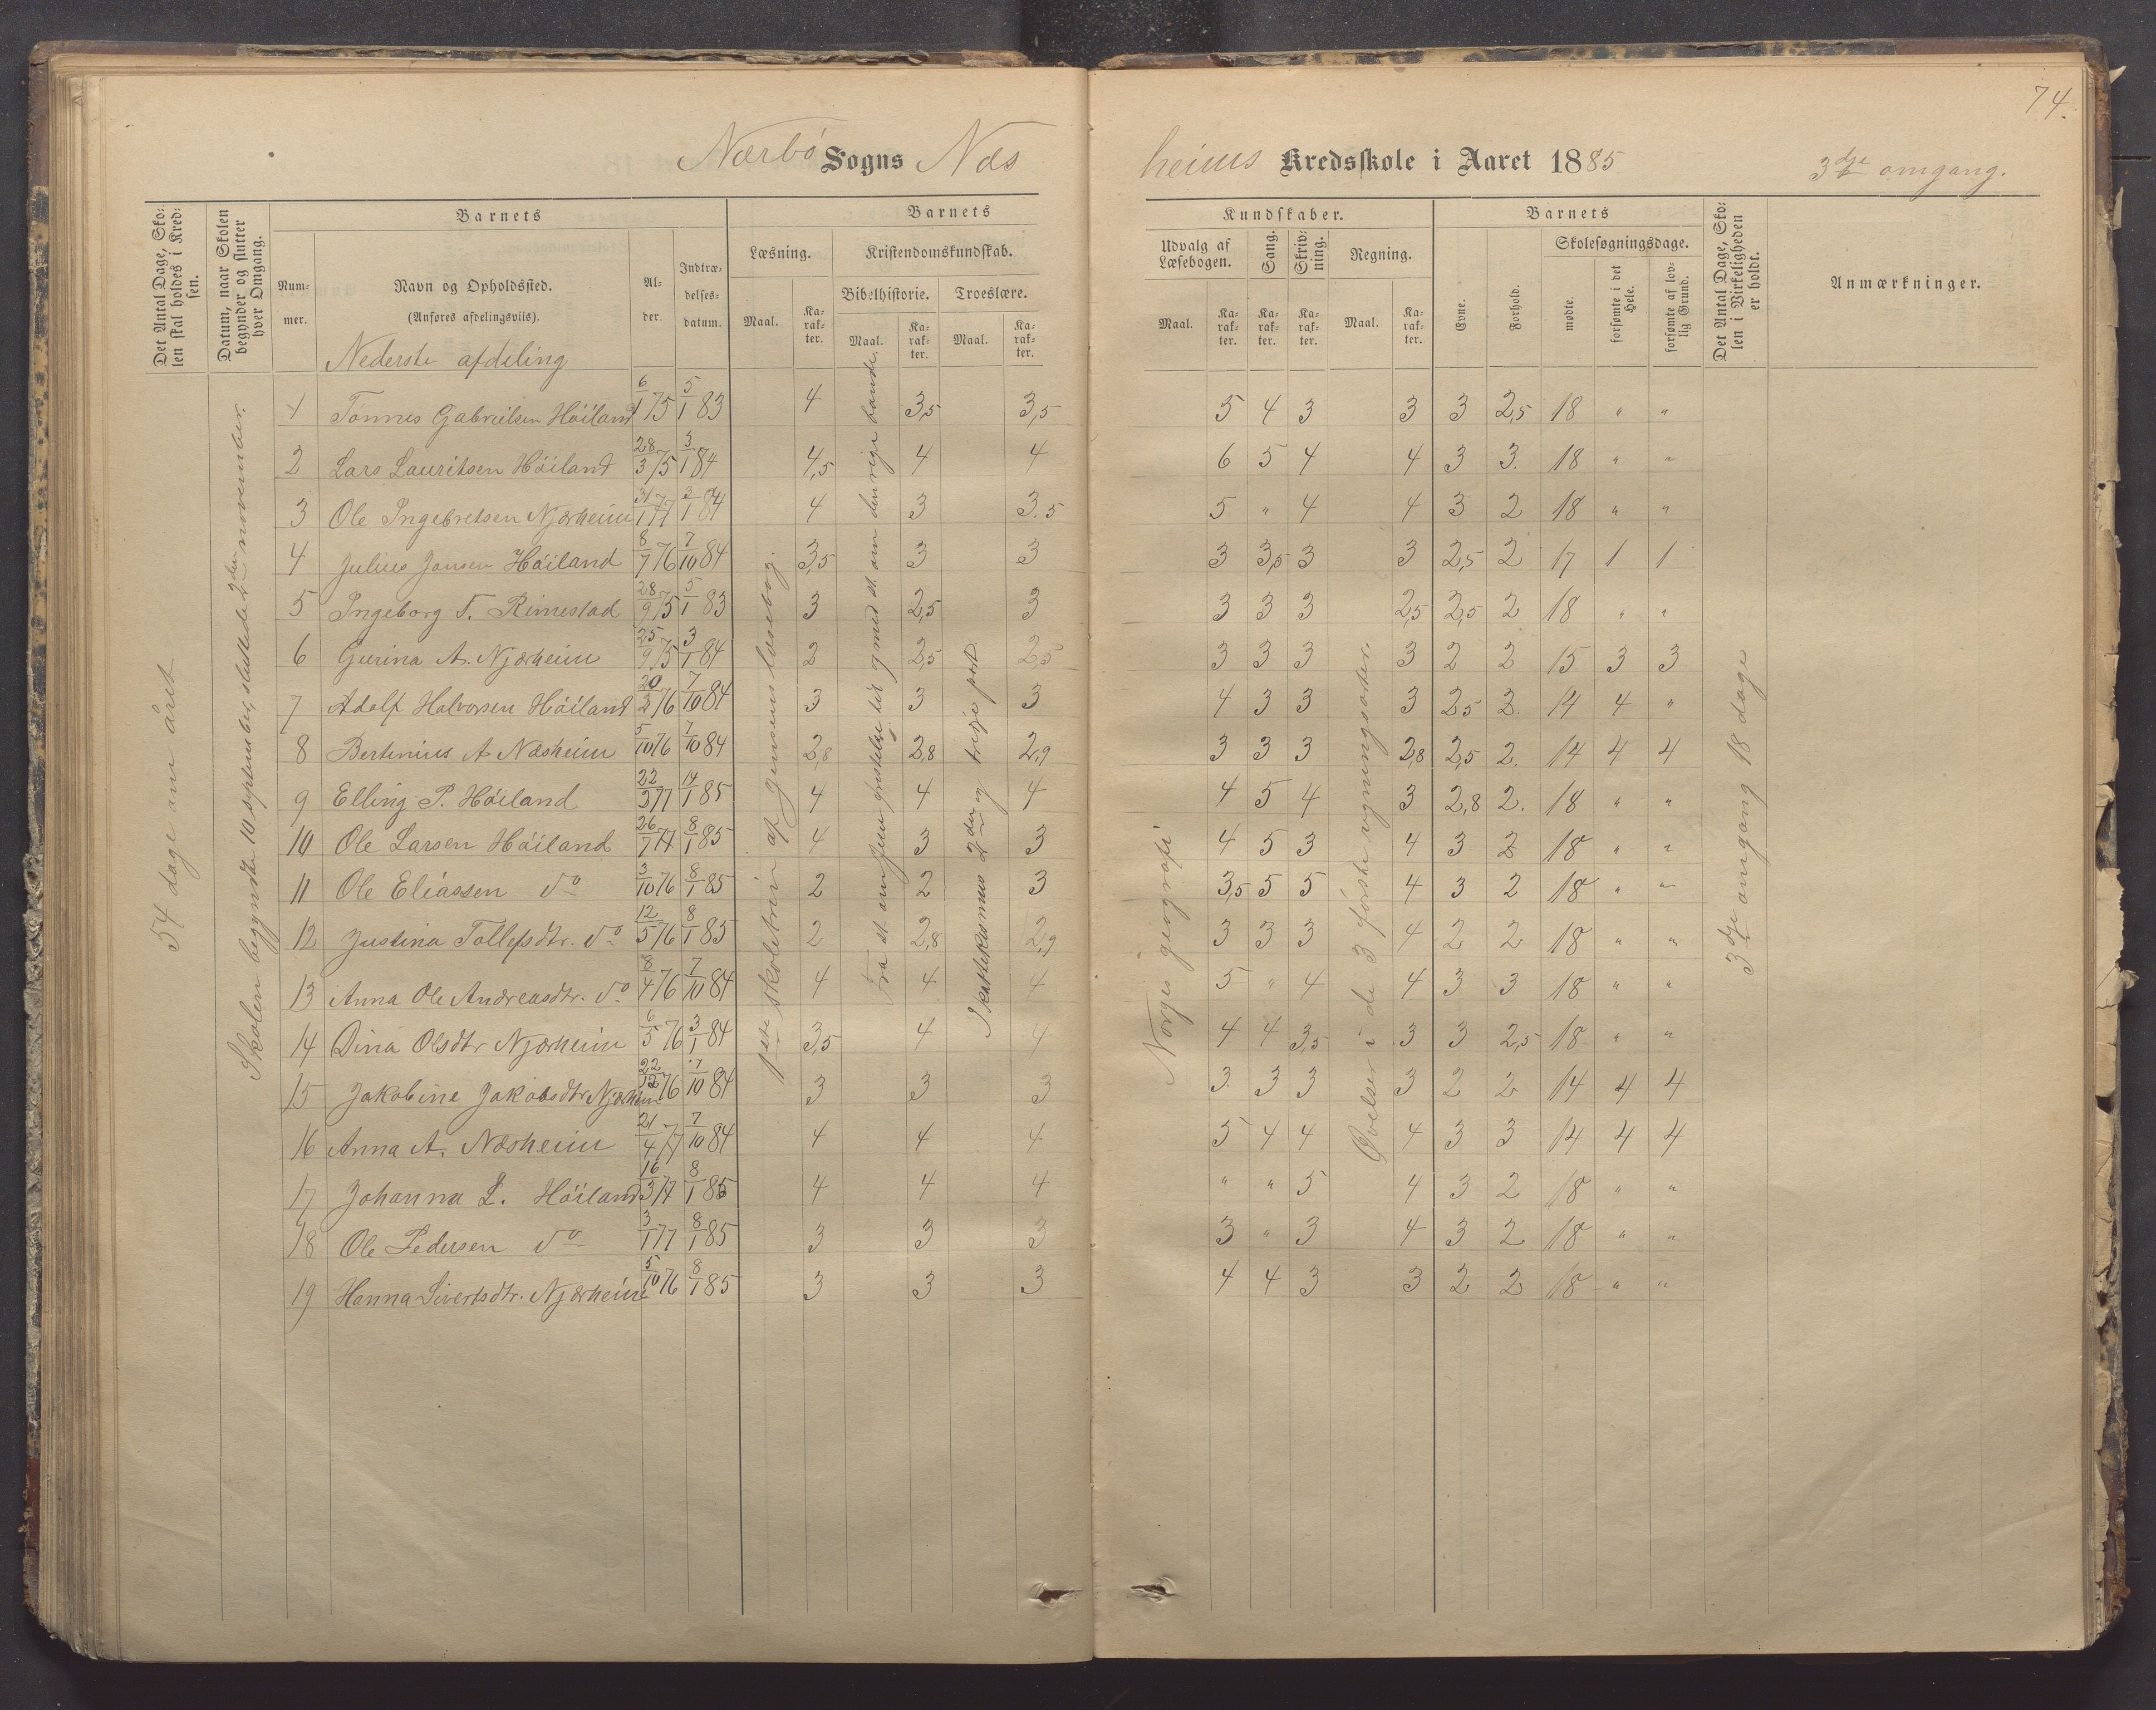 74.
Nærbø Sogns Næsheims Kredsskole i Aaret 1885 3dje omgang.
Det Antal Dage, Skolen skal holdes i Kredsen.
Datum, naar Skolen begynder og slutter hver Omgang.
Barnets
Nummer.
Navn og Opholdssted.
(Anføres afdelingsviis).
Alder.
Indtrædelsesdatum.
Barnets
Læsning.
Maal.
Karakter.
Kristendomskundskab.
Bibelhistorie.
Maal.
Karakter.
Troeslære.
Maal.
Karakter.
Kundskaber.
Udvalg af Læsebogen.
Maal.
Karakter.
Sang.
Karakter.
Skrivning.
Karakter.
Regning.
Maal.
Karakter.
Barnets
Evne.
Forhold.
Skolesøgningsdage.
mødte.
forsømte i det Hele.
forsømte af lovlig Grund.
Det Antal Dage, Skolen i Virkeligheden er holdt.
Anmærkninger.
Nederste afdeling
54 dage om året
Skolen begyndte 10 september, sluttede 2den november.
1ste skoletrin af Jensens læsebog.
Fra st. om Jesu fristelse til og med st. om den rige bonde.
Skatteksismus 2den og tredje part
Norges geografi
Øvelser i de 3 første regningsarter.
3dje omgang 18 dage
1 Tønnes Gabrielsen Høiland 6/1 75 5/1 83 4 3,5 3,5 5 4 3 3 3 2,5 18 " "
2 Lars Lauritsen Høiland 28/3 75 3/1 84 4,5 4 4 6 5 4 4 3 3. 18 " "
3 Ole Ingebretsen Njærheim 31/1 77 3/1 84 4 3 3.5 5 " 4 4 3 2 18 " "
4 Julius Jansen Høiland 8/7 76 7/10 84 3,5 3 3 3 3,5 3 3 2,5 2 17 1 1
5 Ingeborg T. Rimestad 28/9 75 5/1 83 3 2,5 3 3 3 3 2,5 2,5 2 18 " "
6 Gurina A. Njærheim 25/9 75 3/1 84 2 2,5 2,5 3 3 3 3 2 2 15 3 3
7 Adolf Halvorsen Høiland 20/2 76 7/10 84 3 3 3 4 3 3 3 2,5 2. 14 4 "
8 Bertinius A Næsheim 5/10 76 7/10 84 2,8 2,8 2,9 3 3 3 2,8 2,5 2. 14 4 4
9 Elling P. Høiland 22/3 77 14/1 85 4 4 4 4 5 4 3 2,8 2. 18 " "
10 Ole Larsen Høiland 26/7 77 8/1 85 4 3 3 4 5 3 4 3 2 18 " "
11 Ole Eliassen do 3/10 76 8/1 85 2 2 3 3,5 5 5 4 3 2 18 " "
12 Justina Tollefsdtr. do 12/5 76 8/1 85 2 2,8 2,9 3 3 3 4 2 2 18 " "
13 Anna Ole Andreasdtr. do 8/4 76 7/10 84 4 4 4 5 " 4 4 3 3 18 " "
14 Dina Olsdtr Njærheim 6/5 76 3/1 84 3,5 4 4 4 4 3,5 3 3 2,5 18 " "
15 Jakobine Jakobsdtr Njærheim 22/12 76 7/10 84 3 3 3 3 3 3 3 2 2 14 4 4
16 Anna A. Næsheim 21/4 77 7/10 84 4 4 4 5 4 4 4 3 3 14 4 4
17 Johanna L. Høiland 16/3 77 8/1 85 4 4 4 " " 5 4 3 2 18 " "
18 Ole Pedersen do 3/1 77 8/1 85 3 3 3 3 " 3 4 3 2 18 " "
19 Hanna Sivertsdtr. Njærheim 5/10 76 8/1 85 3 3 3 4 4 3 3 2 2 18 " "